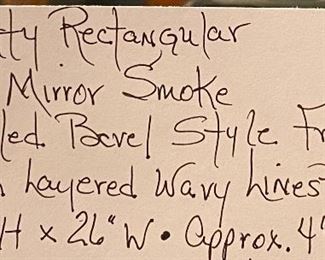 ty Rectangular
Mirror Smoke
led Bevel Style Fr
Layered Wavy Lines
H x 26" W • Approx. 4"